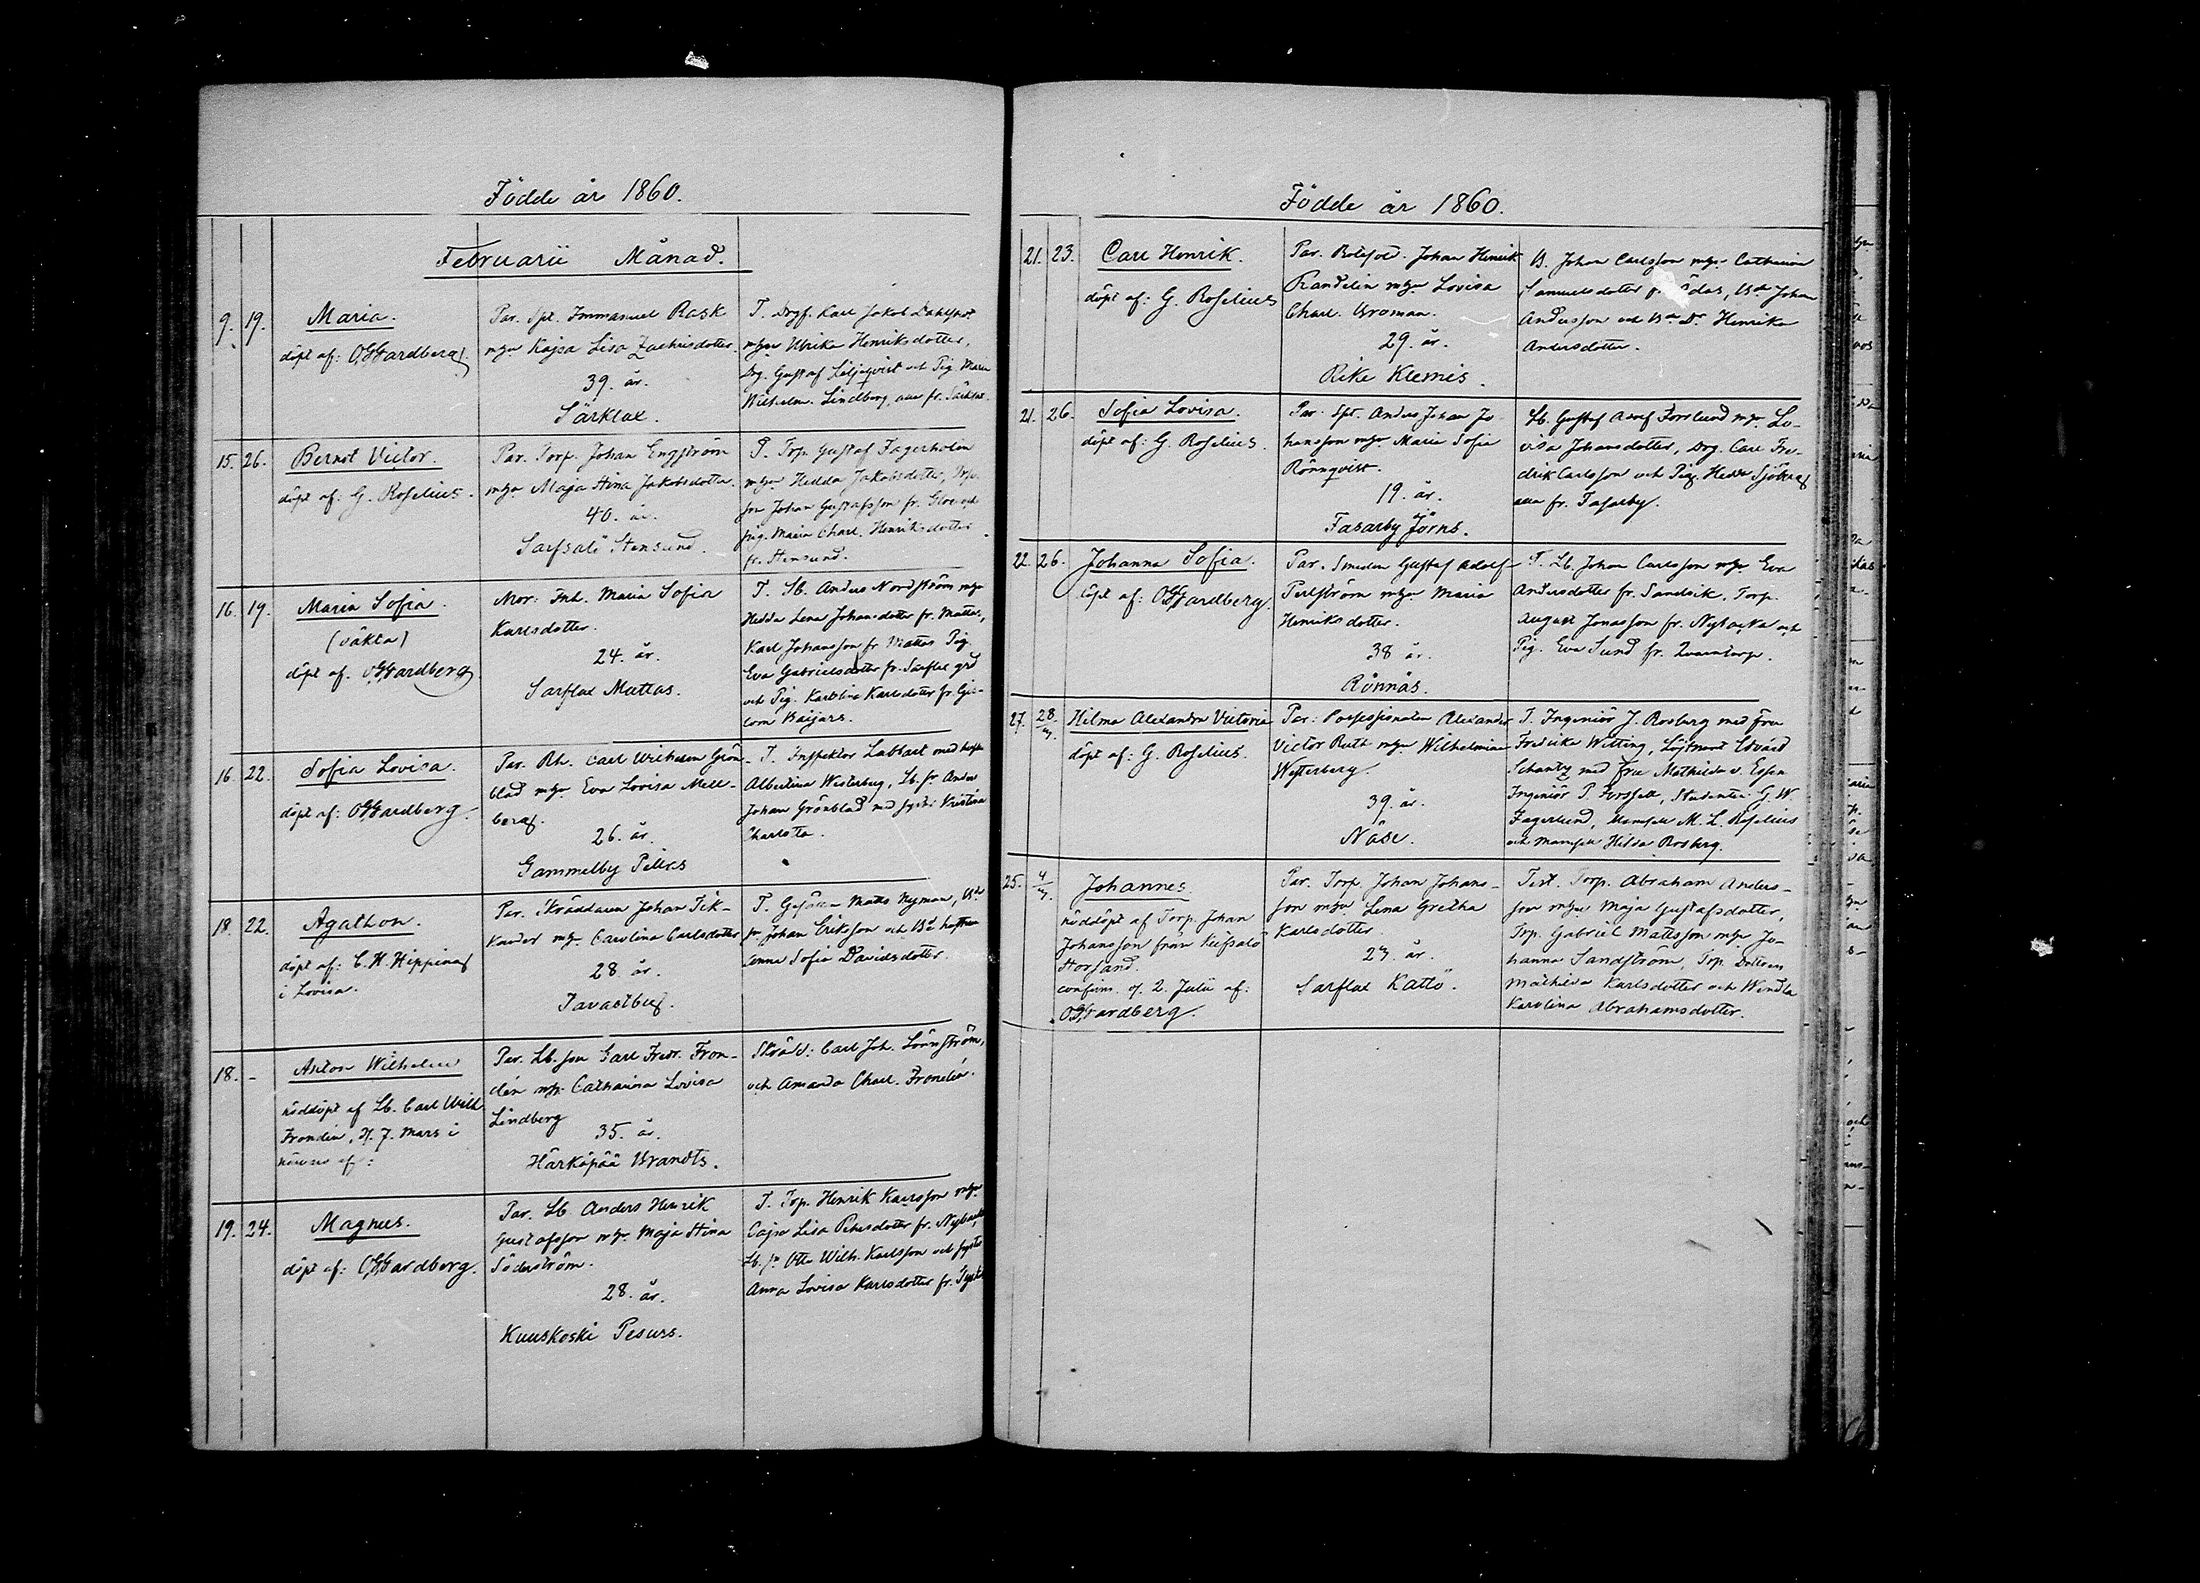 Födde år 1860.
Februarii Månad.
9. 19. Maria.
döpt af: O. G. Gardberg.
Par. Spt. Immanuel Rask
mhu Kajsa Lisa Zachrisdotter.
39. år.
Särklax.
T. Drgf. Karl Jakob Dahlqvist
mhu Ulrika Henriksdotter,
Drg. Gustaf Liljeqvist och Pig. Maria
Wilhelm. Lindberg, alla fr. Särklax.
15. 26. Bernst Victor.
döpt af: G. Roselius.
Par. Torp. Johan Engström
mhu Maja Stina Jakobsdotter.
40. år.
Sarfsalö Stensund.
T. Torp. Gustaf Fagerholm
mhu Hedda Jakobsdotter, Torp.
son Johan Gustafsson fr.
Pig. Maria Charl. Henriksdotter
fr. Stensund.
16. 19. Maria Sofia.
(oäkta)
döpt af. O. G. Gardberg
Mor: Inh. Maria Sofia
Karlsdotter.
24. år.
Sarflax Mattas.
T. Lb. Anders Nordström mhu
Hedda Lena Johansdotter fr. Mattas,
Karl Johansson fr Mattas Pig.
Eva Gabrielsdotter fr. Sarflax grd
och Pig. Karolina Karlsdotter fr Gis-
lom Baijars.
16. 22. Sofia Lovisa.
döpt af: O. G. Gardberg.
Par. Rh. Carl Wilhelm Grön-
blad mhu Eva Lovisa Mell-
berg.
26. år.
Gammelby Pellas
T. Inspektor Labbart med hustru
Albertina Westerberg, Lb. sn Anders
Johan Grönblad med syster Kristina
Charlotta.
18. 22. Agathon.
döpt af: C. H. Hippinag
i Lovisa.
Par. Skräddaren Johan Tik-
kander mhu Carolina Carlsdotter
28 år.
Tavastby.
T. Gesällen Matts Nyman, Bd
sn Johan Eriksson och Bd hustrun
Anna Sofia Davidsdotter.
18. - Anton Wilhelm
nöddöpt af Lb. Carl Wilh.
Frondén, d. 7. Mars i
närvaro af:
Par. Lb. son Carl Fredr. Fron-
dén mhu Catharina Lovisa
Lindberg
35. år.
Härkäpää Brandts.
Skräd: Carl Joh. Lönnström,
och Amanda Charl. Frondén.
19. 24. Magnus.
döpt af: O. G. Gardberg.
Par. Lb. Anders Henrik
Gustafsson mhu Maja Stina
Söderström.
28. år.
Kuuskoski Pesurs.
T. Torp. Henrik Karlsson mhu
Cajsa Lisa Petersdotter fr. Nybacka,
Lb. sn Otto Wilh. Karlsson och syster
Anna Lovisa Karlsdotter fr.
Födde år 1860.
21. 23. Carl Henrik.
döpt af: G. Roselius
Par. Johan Henrik
Randelin mhu Lovisa
Charl. Broman.
29. år.
Rike Klemis.
B. Johan Carlsson mhu Catharina
Samuelsdotter, Bd Johan
Andersson och Bd Dr. Henrika
Andersdotter.
21. 26. Sofia Lovisa.
döpt af: G. Roselius.
Par. Spt. Anders Johan Jo-
hansson mhu Maria Sofia
Rönnqvist.
19. år.
Fasarby Jörns.
Lb. Gustaf Adolf Forslund mhu Lo-
visa Johansdotter, Drg. Carl Fre-
drik Carlsson och Pig. Hedda Sjöberg
alla fr. Fasarby.
22. 26. Johanna Sofia.
döpt af: O. G. Gardberg.
Par. Smeden Gustaf Adolf
Perlström mhu Maria
Henriksdotter.
38 år.
Rönnäs.
T. Lb. Johan Carlsson mhu Eva
Andersdotter fr. Sandvik, Torp.
August Jonasson fr. Nybacka och
Pig. Eva Sund fr. Qvarntorp.
27. 28/4. Hilma Alexandra Victoria
döpt af: G. Roselius.
Par: Possessionaten Alexander
Victor Ruth mhu Wilhelmina
Westerberg.
39. år.
Näse.
T. Ingeniör J. Rosberg med fru
Fredrika Witting, Löjtnant Edvard
Schantz med fru Mathilda v. Essen
Ingeniör P. Forssell, Studenten G. W.
Fagerlund, Mamsell M. L. Roselius
och mamsell Hilda Rosberg.
25. 4/4. Johannes.
nöddöpt af Torp. Johan
Johansson från Kejvsalö
Storsand.
confirm. d. 2. Julii af:
O. G. Gardberg.
Par. Torp. Johan Johans-
son mhu Lena Gretha
Karlsdotter.
27. år.
Sarflax Kattö.
Test. Torp. Abraham Anders-
son mhu Maja Gustafsdotter,
Torp. Gabriel Mattsson mhu Jo-
hanna Sandström, Torp. Dottern
Mathilda Karlsdotter och Wendla
Karolina Abrahamsdotter.